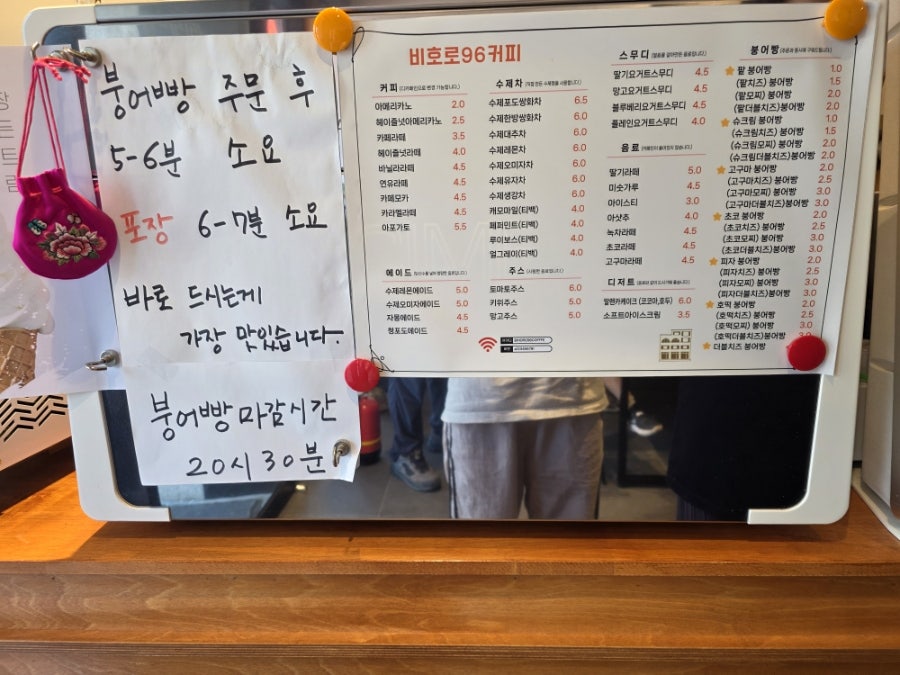 붕어빵 주문 후
5-6분 소요
포장 6-7분 소요
바로 드시는게
가장 맛있습니다.
붕어빵 마감시간
20시 30분
비호로96커피
커피
아메리카노 2.0
헤이즐넛아메리카노 2.5
카페라떼 3.5
헤이즐넛라떼 4.0
바닐라라떼 4.5
연유라떼 4.5
카페모카 4.5
카라멜라떼 4.5
아포가토 5.5
에이드
수제레몬에이드 5.0
수제오미자에이드 5.0
자몽에이드 4.5
청포도에이드 4.5
수제차
수제포도쌍화차 6.5
수제한방쌍화차 6.0
수제대추차 6.0
수제레몬차 6.0
수제오미자차 6.0
수제유자차 6.0
수제생강차 6.0
캐모마일(티백) 4.0
페퍼민트(티백) 4.0
루이보스(티백) 4.0
얼그레이(티백) 4.0
주스
토마토주스 6.0
키위주스 5.0
망고주스 5.0
스무디
딸기요거트스무디 4.5
망고요거트스무디 4.5
블루베리요거트스무디 4.5
플레인요거트스무디 4.0
음료
딸기라떼 5.0
미숫가루 4.5
아이스티 3.0
아샷추 4.0
녹차라떼 4.5
초코라떼 4.5
고구마라떼 4.5
디저트
6.0
소프트아이스크림 3.5
붕어빵
팥 붕어빵 1.0
(팥치즈) 붕어빵 1.5
(팥모찌) 붕어빵 2.0
(팥더블치즈)붕어빵 2.0
슈크림 붕어빵 1.0
(슈크림치즈) 붕어빵 1.5
(슈크림모찌) 붕어빵 2.0
(슈크림더블치즈)붕어빵 2.0
고구마 붕어빵 2.0
(고구마치즈) 붕어빵 2.5
(고구마모찌) 붕어빵 3.0
(고구마더블치즈)붕어빵 3.0
초코 붕어빵 2.0
(초코치즈) 붕어빵 2.5
(초코모찌) 붕어빵 3.0
(초코더블치즈)붕어빵 3.0
피자 붕어빵 2.0
(피자치즈) 붕어빵 2.5
(피자모찌) 붕어빵 3.0
(피자더블치즈)붕어빵 3.0
호떡 붕어빵 2.0
(호떡치즈) 붕어빵 2.5
(호떡모찌) 붕어빵 3.0
(호떡더블치즈)붕어빵
더블치즈 붕어빵